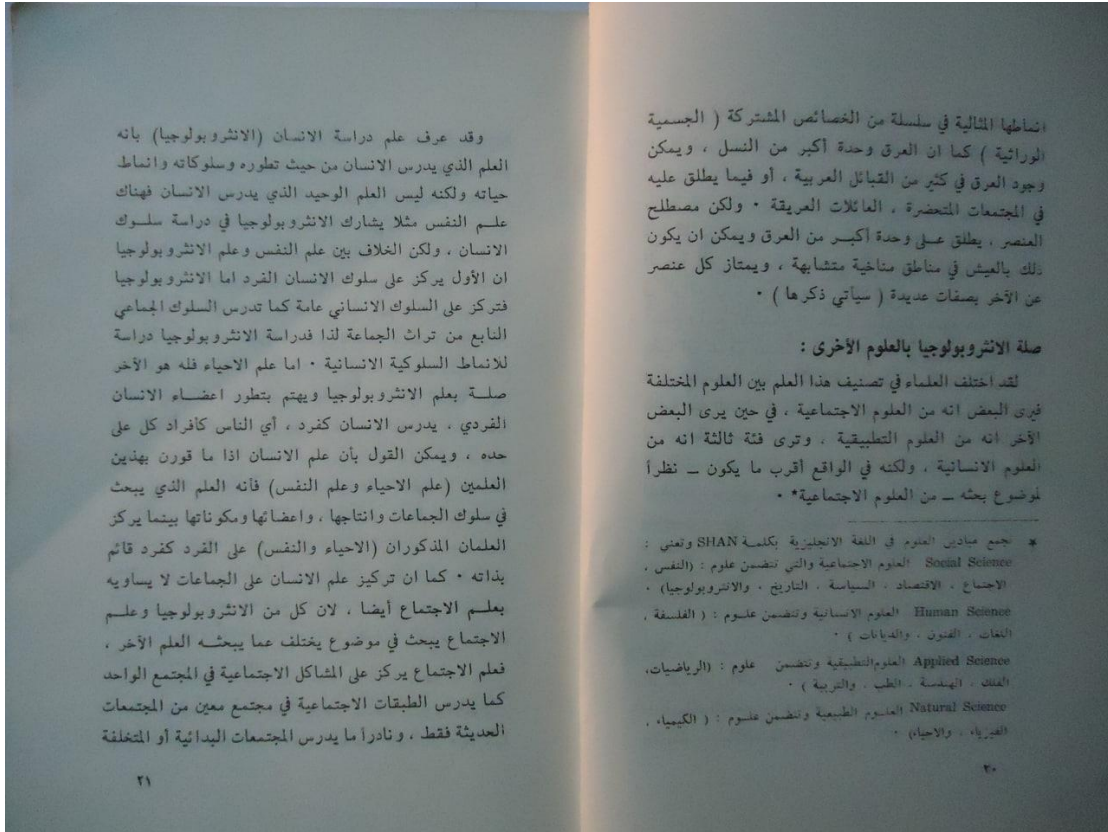 انماطها المثالية في سلسلة من الخصائص المشتركة ( الجسمية
الوراثية ) كما ان العرق وحدة أكبر من النسل ، ويمكن
وجود العرق في كثير من القبائل العربية ، أو فيما يطلق عليه
في المجتمعات المتحضرة ، العائلات العريقة ٠ ولكن مصطلح
العنصر ، يطلق عـلى وحدة أكبـر من العرق ويمكن ان يكون
ذلك بالعيش في مناطق مناخية متشابهة ، ويمتاز كل عنصر
عن الآخر بصفات عديدة ( سيأتي ذكرها ) ٠
صلة الانثروبولوجيا بالعلوم الأخرى :
لقد اختلف العلماء في تصنيف هذا العلم بين العلوم المختلفة
فيرى البعض انه من العلوم الاجتماعية ، في حين يرى البعض
الآخر انه من العلوم التطبيقية ، وترى فئة ثالثة انه من
العلوم الانسانية ، ولكنه في الواقع أقرب ما يكون ــ نظراً
لموضوع بحثه ــ من العلوم الاجتماعية* ٠
* تجمع ميادين العلوم في اللغة الانجليزية بكلمـة SHAN وتعني :
Social Science العلوم الاجتماعية والتي تتضمن علوم : (النفس ،
الاجتماع ، الاقتصاد ، السياسة ، التاريخ ، والانثروبولوجيا) ٠
Human Science العلوم الانسانية وتتضمن علـوم : ( الفلسفة ،
اللغات ، الفنون ، والديانات ) ٠
Applied Science العلوم التطبيقية وتتضمن علوم : (الرياضيات،
الفلك ، الهندسة ، الطب ، والتربية ) ٠
Natural Science العلـوم الطبيعية وتتضمن علـوم : ( الكيمياء ،
الفيزياء ، والاحياء) ٠
٢٠
وقد عرف علم دراسة الانسان (الانثروبولوجيا) بانه
العلم الذي يدرس الانسان من حيث تطوره وسلوكاته وانماط
حياته ولكنه ليس العلم الوحيد الذي يدرس الانسان فهناك
علـم النفس مثلا يشارك الانثروبولوجيا في دراسة سلـوك
الانسان ، ولكن الخلاف بين علم النفس وعلم الانثروبولوجيا
ان الأول يركز على سلوك الانسان الفرد اما الانثروبولوجيا
فتركز على السلوك الانساني عامة كما تدرس السلوك الجماعي
النابع من تراث الجماعة لذا فدراسة الانثروبولوجيا دراسة
للانماط السلوكية الانسانية ٠ اما علم الاحياء فله هو الآخر
صلـة بعلم الانثروبولوجيا ويهتم بتطور اعضـاء الانسان
الفردي ، يدرس الانسان كفرد ، أي الناس كأفراد كل على
حده ، ويمكن القول بأن علم الانسان اذا ما قورن بهذين
العلمين (علم الاحياء وعلم النفس) فأنه العلم الذي يبحث
في سلوك الجماعات وانتاجها ، واعضائها ومكوناتها بينما يركز
العلمان المذكوران (الاحياء والنفس) على الفرد كفرد قائم
بذاته ٠ كما ان تركيز علم الانسان على الجماعات لا يساويه
بعلـم الاجتماع أيضا ، لان كل من الانثروبولوجيا وعلـم
الاجتماع يبحث في موضوع يختلف عما يبحثـه العلم الآخر ،
فعلم الاجتماع يركز على المشاكل الاجتماعية في المجتمع الواحد
كما يدرس الطبقات الاجتماعية في مجتمع معين من المجتمعات
الحديثة فقط ، ونادرا ما يدرس المجتمعات البدائية أو المتخلفة
٢١